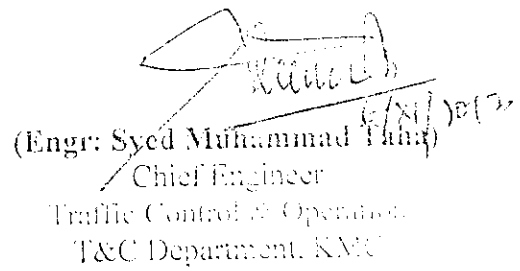 (Engr: Syed Muhammad Taha)
Chief Engineer
Traffic Control & Operation
T&C Department, KMC